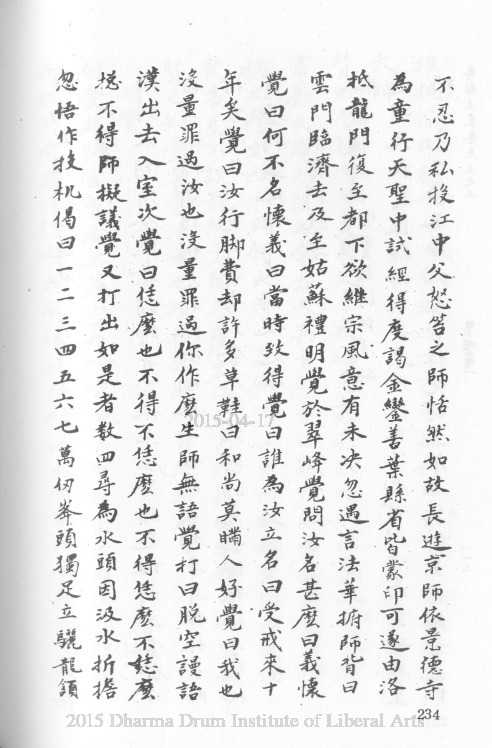 不忍乃私投江中父怒笞之師恬然如故長遊京師依景德寺
為童行天聖中試經得度謁金鑾善葉縣省皆蒙印可遂由洛
抵龍門復至都下欲繼宗風意有未决忽遇言法華拊師背曰
雲門臨濟去及至姑蘇禮明覺於翠峰覺問汝名甚麽曰義懷
覺曰何不名懷義曰當時致得覺曰誰為汝立名曰受戒來十
年矣覺曰汝行脚費却許多草鞋曰和尚莫瞞人好覺曰我也
沒量罪過汝也沒量罪過你作麽生師無語覺打曰脫空謾語
漢出去入室次覺曰恁麽也不得不恁麽也不得恁麽不恁麽
捴不得師擬議覺又打出如是者数四尋為水頭因汲水折擔
忽悟作投机偈曰一二三四五六七萬仞峯頭獨足立驪龍頷
234
2015-04-17
2015 Dharma Drum Institute of Liberal Arts